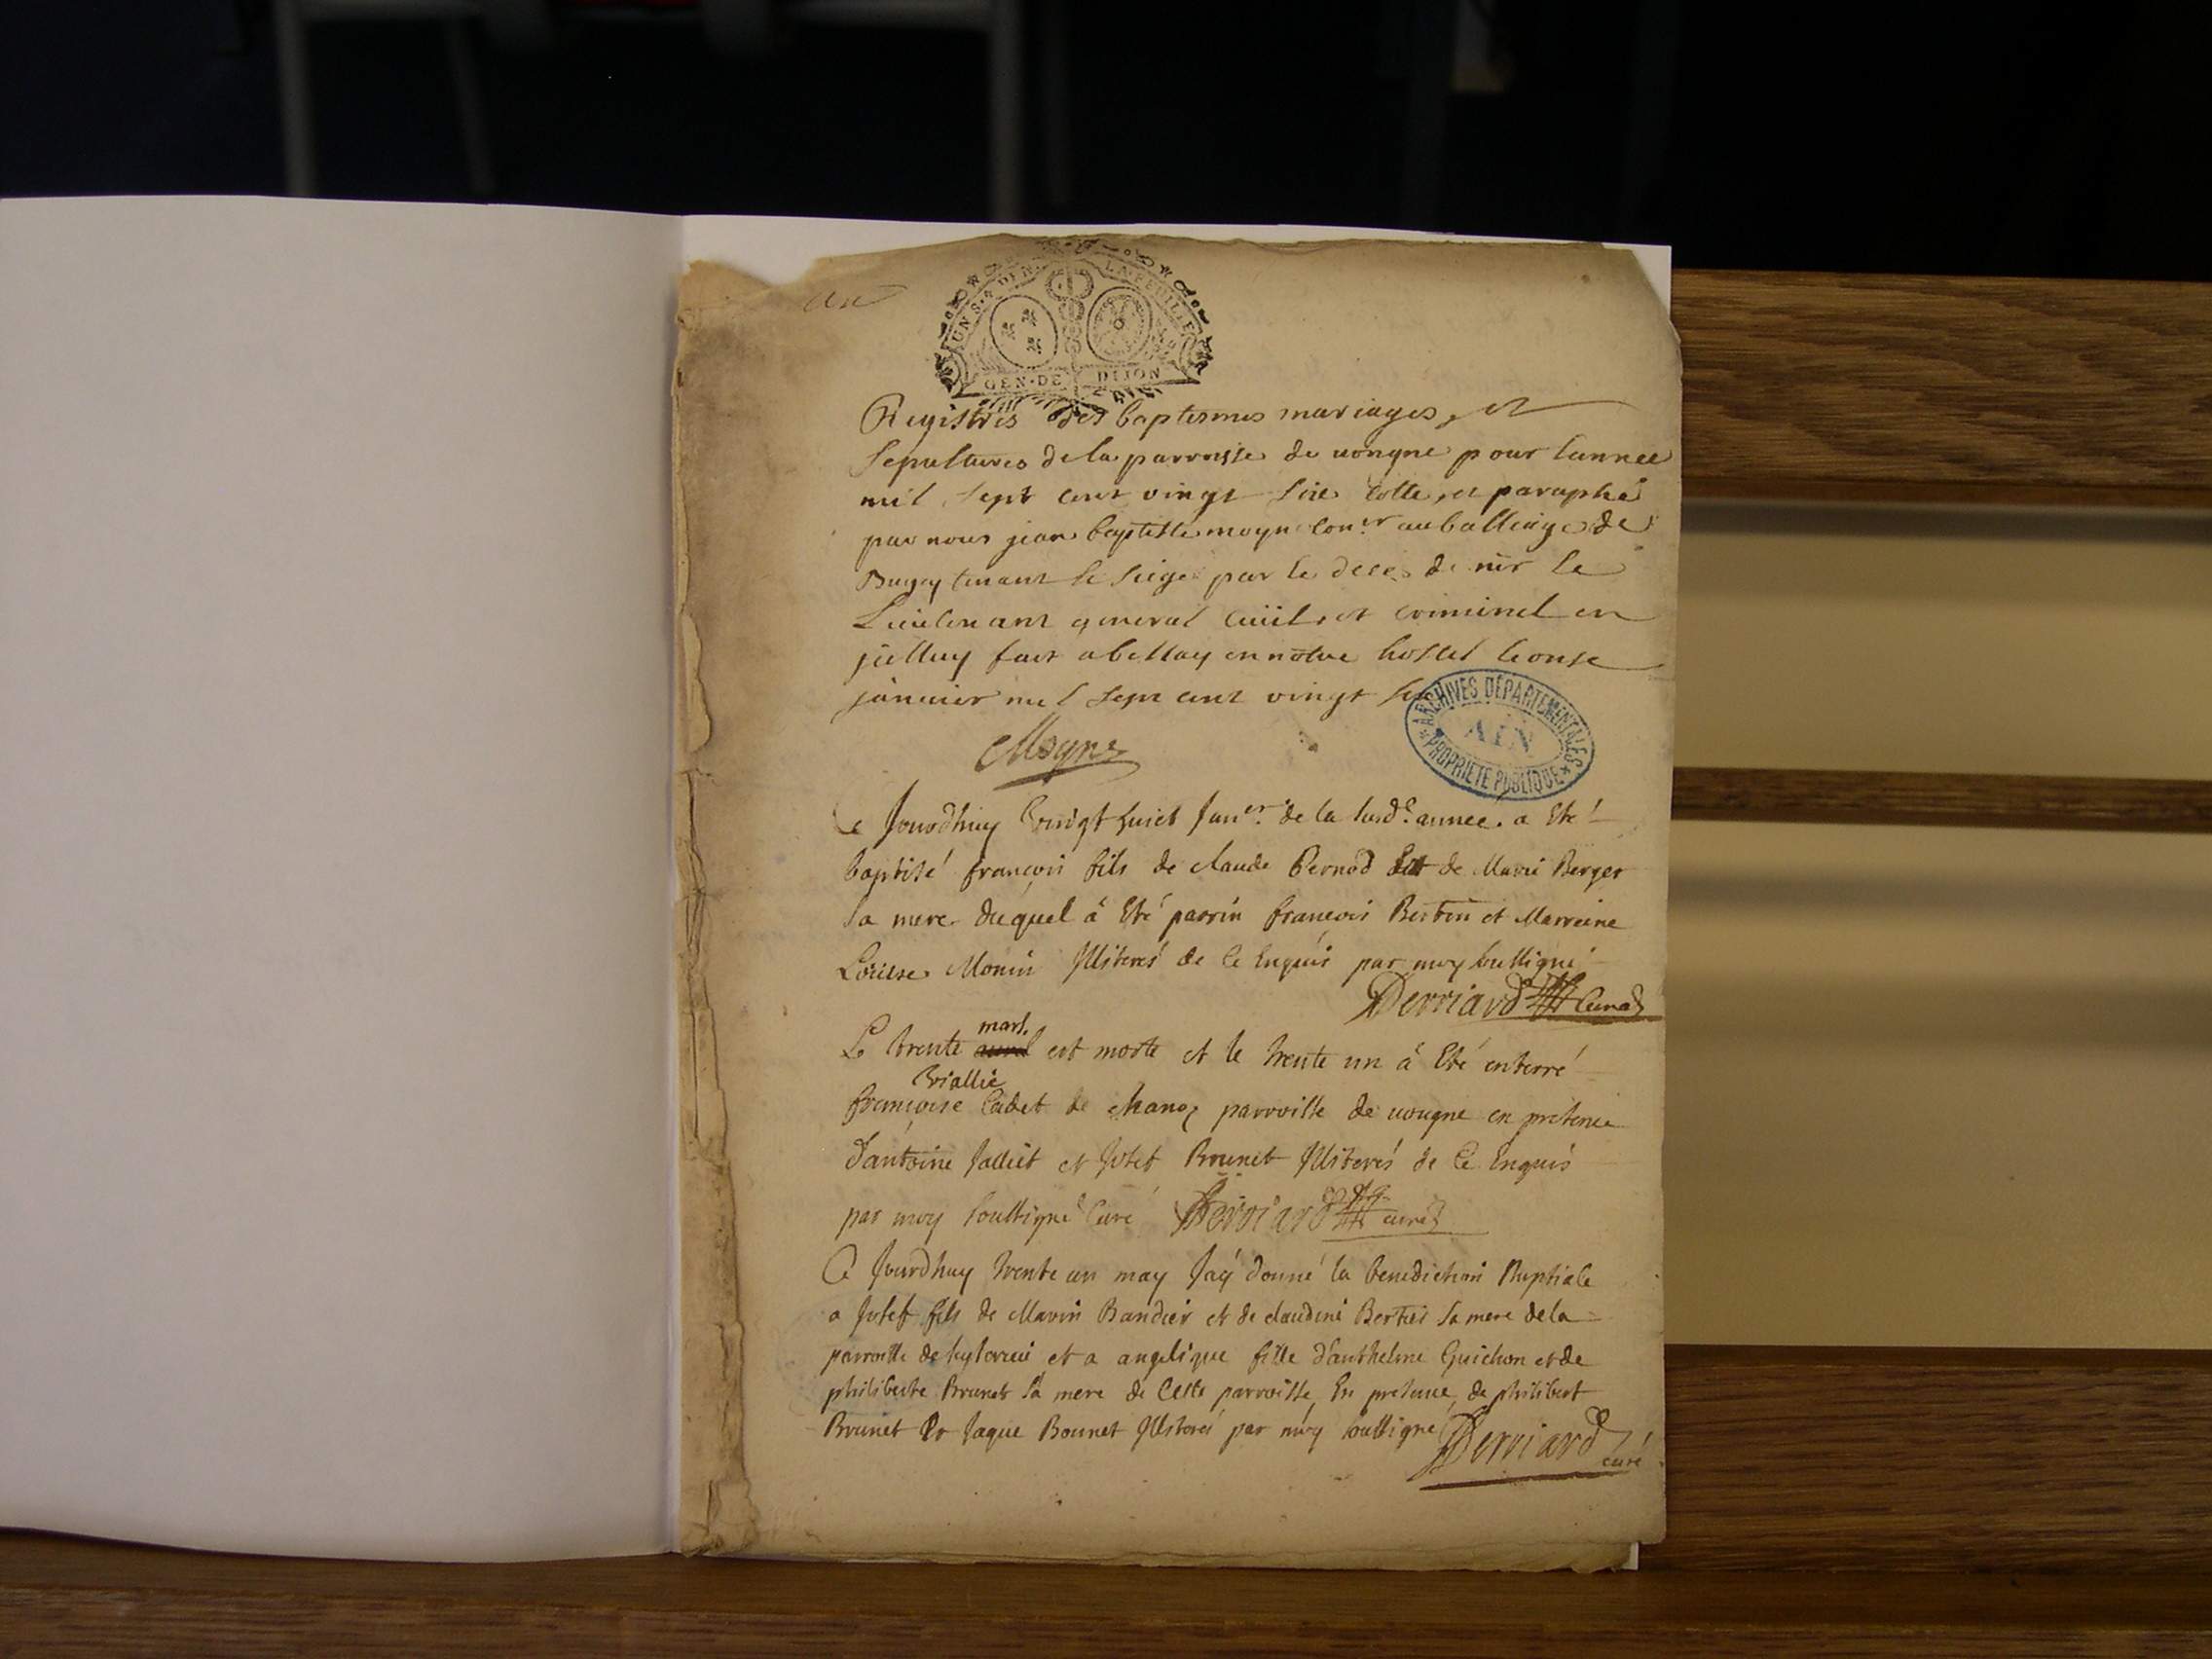 UN S. 4 DEN. LA FEUILLE
GEN. DE DIJON
Registres des baptesmes mariages, et
sepultures de la parroisse de uongne pour lannee
mil sept cent vingt sixe cotte, et paraphé
par nous jean baptiste moyne con.er au balliage de
Bugey tenant le siege par le deces de mr le
Lieutenant general ciuil, et criminel en
jcelluy fait a bellay en notre hostel le onse
januier mil sept cent vingt
Moyne
ARCHIVES DÉPARTEMENTALES
AIN
PROPRIÉTÉ PUBLIQUE
Ce Jourdhuy vingt huict Jan.er de la susd.e année. a Eté
baptisé françois fils de claude Pernod Et de Marie Berger
sa mere duquel â Eté parrin françois Bertin et Marreine
Louise Monin Illiterés de ce Enquis par moy soussigné
Derriard Curé
mars.
Le trente avril est morte et le trente un â Eté enterré
Briallie
françoise Cadet de chanoz parroisse de uongne en presence
d'antoine Jalliet et Josef Brunet Illiterés de Ce Enquis
par moy soussigné Curé Derriard curé
Ce Jourdhuy trente un may Jaÿ donné la benediction Nuptiale
a Josef fils de Marin Bandier et de claudine Bertier sa mere de la
parroisse de et a angelique fille d'anthelme Guichon et de
philiberte Brunet sa mere de Ceste parroisse En presence de philibert
Brunet Et Jaque Bonnet Illiterés par moy soussigné Derriard
curé